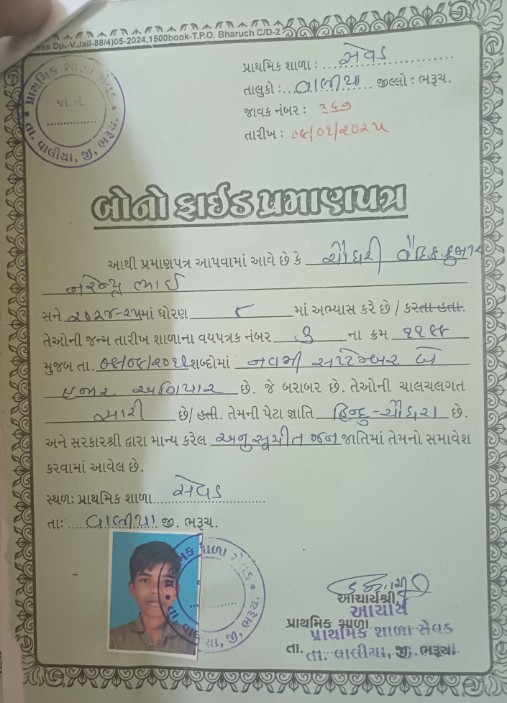 ess Dp.-V.Jail-88/4)05-2024,1500book-T.P.O. Bharuch C/D-2
પ્રાથમિક શાળા : સેવડ
તાલુકો : વાલીયા જીલ્લો : ભરૂચ.
જાવક નંબર : ૨૬૭
તારીખ : ૦૯/૦૧/૨૦૨૫
પ્રાથમિક શાળા સેવડ
તા. વાલીયા, જી. ભરૂચ.
બોનોફાઈડ પ્રમાણપત્ર
આથી પ્રમાણપત્ર આપવામાં આવે છે કે ચૌધરી વૈદિકકુમાર
નરેન્દ્રભાઈ
સને ૨૦૨૪-૨૫માં ધોરણ ૮ માં અભ્યાસ કરે છે / કરતા હતા.
તેઓની જન્મ તારીખ શાળાના વયપત્રક નંબર ૭ ના ક્રમ ૧૧૯૯
મુજબ તા. ૦૯/૦૯/૨૦૧૧ શબ્દોમાં નવમી સપ્ટેમ્બર બે
હજાર અગિયાર છે. જે બરાબર છે. તેઓની ચાલચલગત
સારી છે/ હતી. તેમની પેટા જ્ઞાતિ હિન્દુ-ચૌધરી છે.
અને સરકારશ્રી દ્વારા માન્ય કરેલ અનુસૂચીત જન જાતિમાં તેમનો સમાવેશ
કરવામાં આવેલ છે.
સ્થળ: પ્રાથમિક શાળા સેવડ
તા: વાલીયા જી. ભરૂચ.
આચાર્યશ્રી,
આચાર્ય
પ્રાથમિક શાળા
પ્રાથમિક શાળા સેવડ
તા. તા. વાલીયા, જી. ભરૂચ